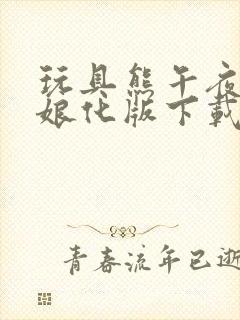 玩具熊午夜
娘化版下载
青春流年已逝